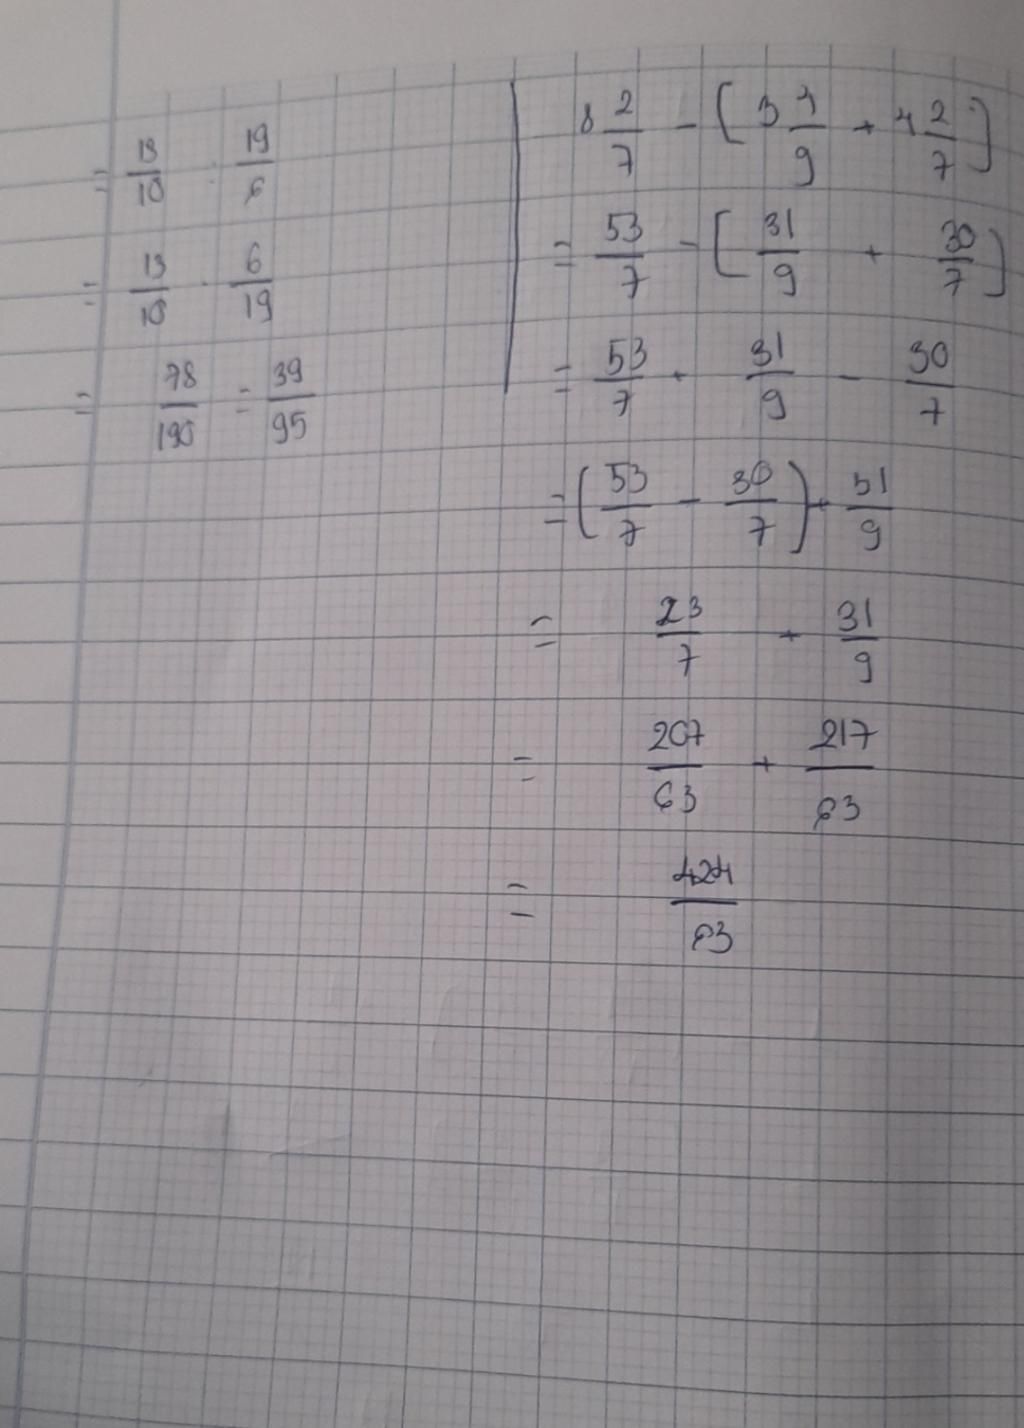 = 13/10 : 19/6
= 13/10 . 6/19
= 78/190 = 39/95
8 2/7 - (3 4/9 + 4 2/7)
= 53/7 - (31/9 + 30/7)
= 53/7 + 31/9 - 30/7
= (53/7 - 30/7) + 31/9
= 23/7 + 31/9
= 207/63 + 217/63
= 424/63